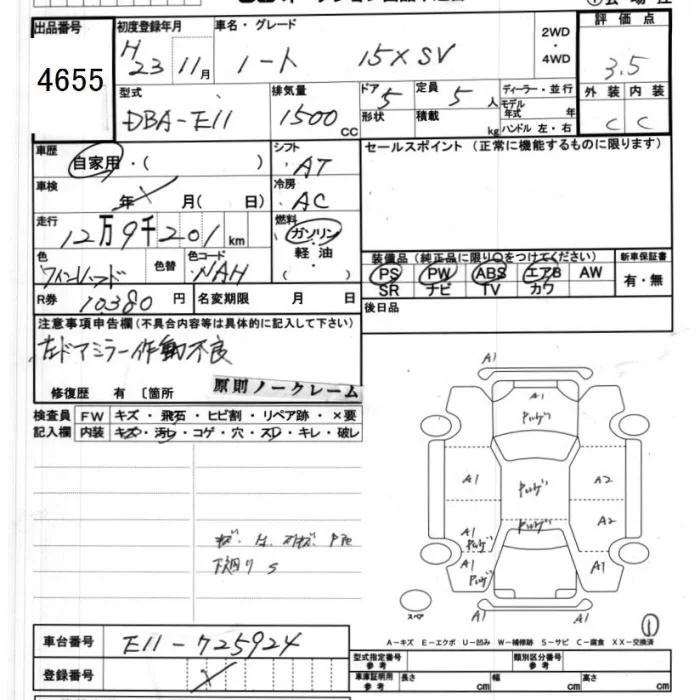 出品番号
4655
初度登録年月
H 23 11月
車名・グレード
ノート 15X SV
2WD
・
4WD
評価点
3.5
外装 内装
C C
型式
DBA-E11
排気量
1500 CC
ドア 5
形状
定員 5 人
積載 kg
ディーラー・並行
モデル年式 年
ハンドル 左・右
車歴
自家用・( )
シフト
AT
車検
年 X 月( 日)
冷房
AC
走行
12万9千201 km
燃料
ガソリン
軽油
( )
色
ワインレッド
色替
色コード
NAH
R券 10380 円
名変期限 月 日
セールスポイント (正常に機能するものに限ります)
装備品 (純正品に限り〇をつけてください)
PS PW ABS エアB AW
SR ナビ TV カワ
新車保証書
有・無
後日品
注意事項申告欄(不具合内容等は具体的に記入して下さい)
左ドアミラー作動不良
修復歴 有 〔箇所
原則ノークレーム
検査員 FW キズ・飛石・ヒビ割・リペア跡・×要
記入欄 内装 キズ・汚レ・コゲ・穴・スレ・キレ・破レ
下廻り S
A1
A1
A1 A2
A2
A1
A1 A1
A1 A1
スペア
①
A-キズ E-エクボ U-凹み W-補修跡 S-サビ C-腐食 XX-交換済
車台番号 E11-725924
登録番号 X
型式指定番号
参考
類別区分番号
参考
車庫証明用
参考
長さ cm 幅 cm 高さ cm